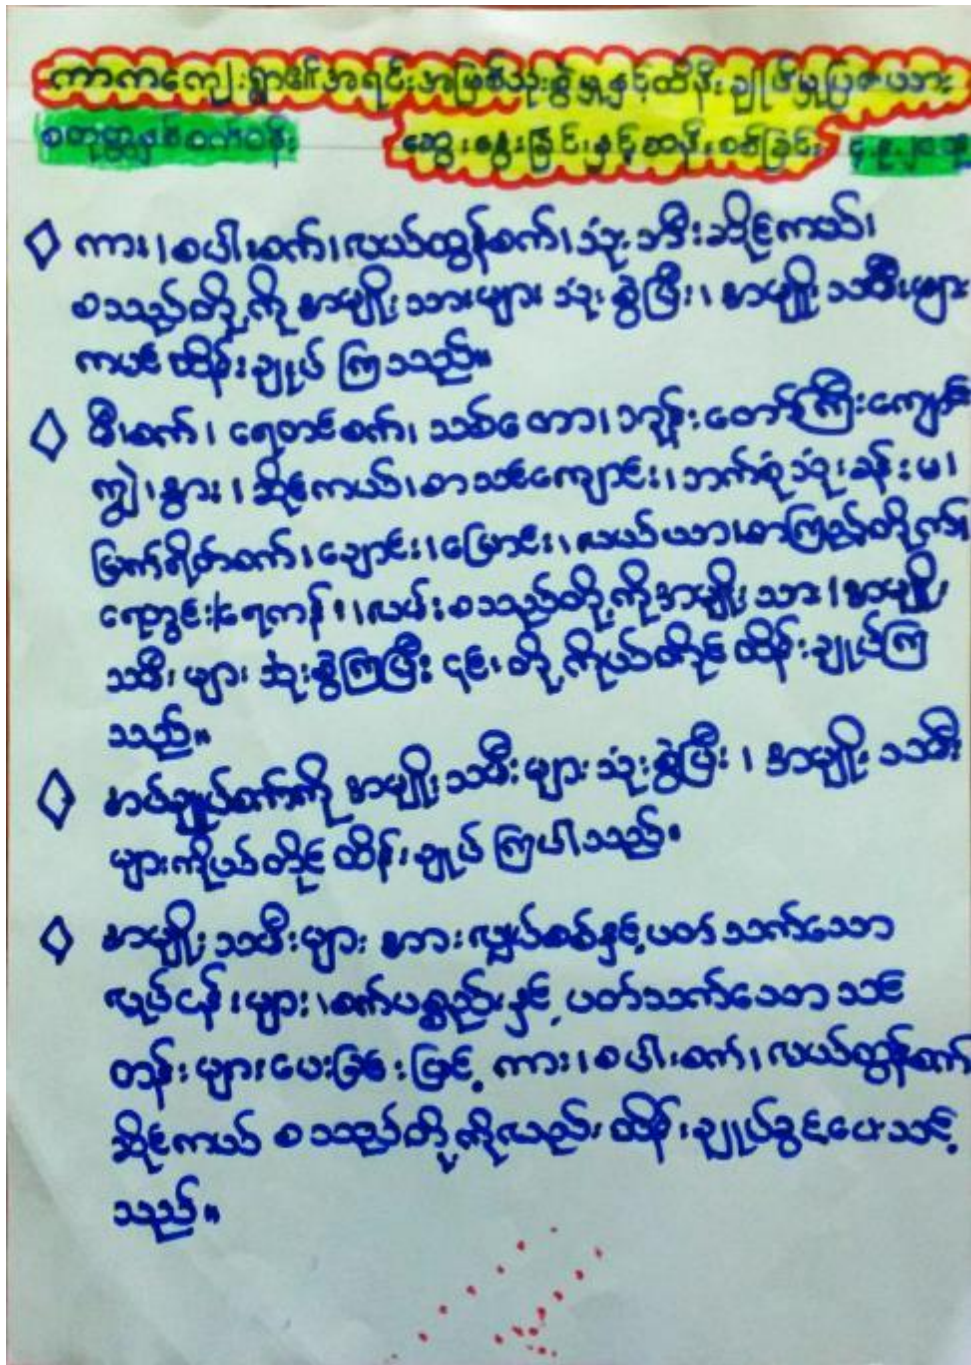 ကာကကျေးရွာ၏အရင်းအမြစ်သုံးစွဲမှုနှင့်ထိန်းချုပ်မှုပြဇယား
စတုတ္ထနှစ်ဝက်ဝန်း ဆွေးနွေးခြင်းနှင့်ဆန်းစစ်ခြင်း
◇ ကား၊စပါးစက်၊လယ်ထွန်စက်၊သုံးဘီးဆိုင်ကယ်၊
စသည်တို့ကို အမျိုးသားများ သုံးစွဲပြီး၊ အမျိုးသမီးများ
ကပင်ထိန်းချုပ် ကြသည်။
◇ မီးစက်၊ ရေတင်စက်၊ သစ်တော၊ဘုန်းတော်ကြီးကျောင်း
ကျွဲ၊နွား၊ဆိုင်ကယ်၊စာသင်ကျောင်း၊ဘက်စုံသုံးခန်းမ၊
မြက်ရိတ်စက်၊ချောင်း၊မြောင်း၊လယ်ယာ၊စာကြည့်တိုက်၊
ရေတွင်း/ရေကန်၊လမ်းစသည်တို့ကိုအမျိုးသား၊အမျိုး
သမီးများ သုံးစွဲကြပြီး ၎င်းတို့ကိုယ်တိုင် ထိန်းချုပ်ကြ
သည်။
◇ အပ်ချုပ်စက်ကို အမျိုးသမီးများသုံးစွဲပြီး၊ အမျိုးသမီး
များကိုယ်တိုင် ထိန်းချုပ် ကြပါသည်။
◇ အမျိုးသမီးများ အား လျှပ်စစ်နှင့်ပတ်သက်သော
လုပ်ငန်းများ၊စက်ပစ္စည်းနှင့် ပတ်သက်သော သင်
တန်းများပေးခြင်းဖြင့် ကား၊စပါးစက်၊လယ်ထွန်စက်
ဆိုင်ကယ် စသည်တို့ကိုလည်းထိန်းချုပ်ခွင့်ပေးသင့်
သည်။